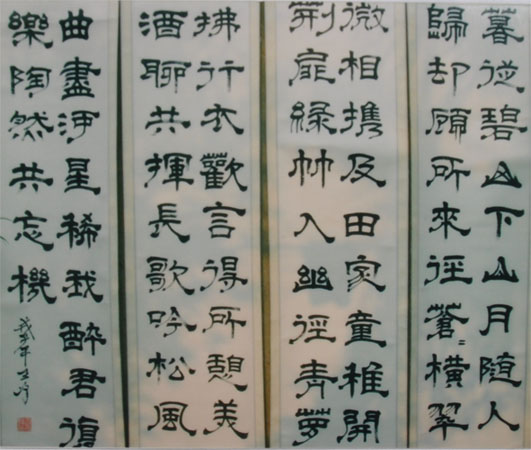 暮從碧山下山月隨人
歸却顧所來徑蒼〻橫翠
微相携及田家童稚開
荊扉綠竹入幽徑青蘿
拂行衣歡言得所憩美
酒聊共揮長歌吟松風
曲盡河星稀我醉君復
樂陶然共忘機
戊子年